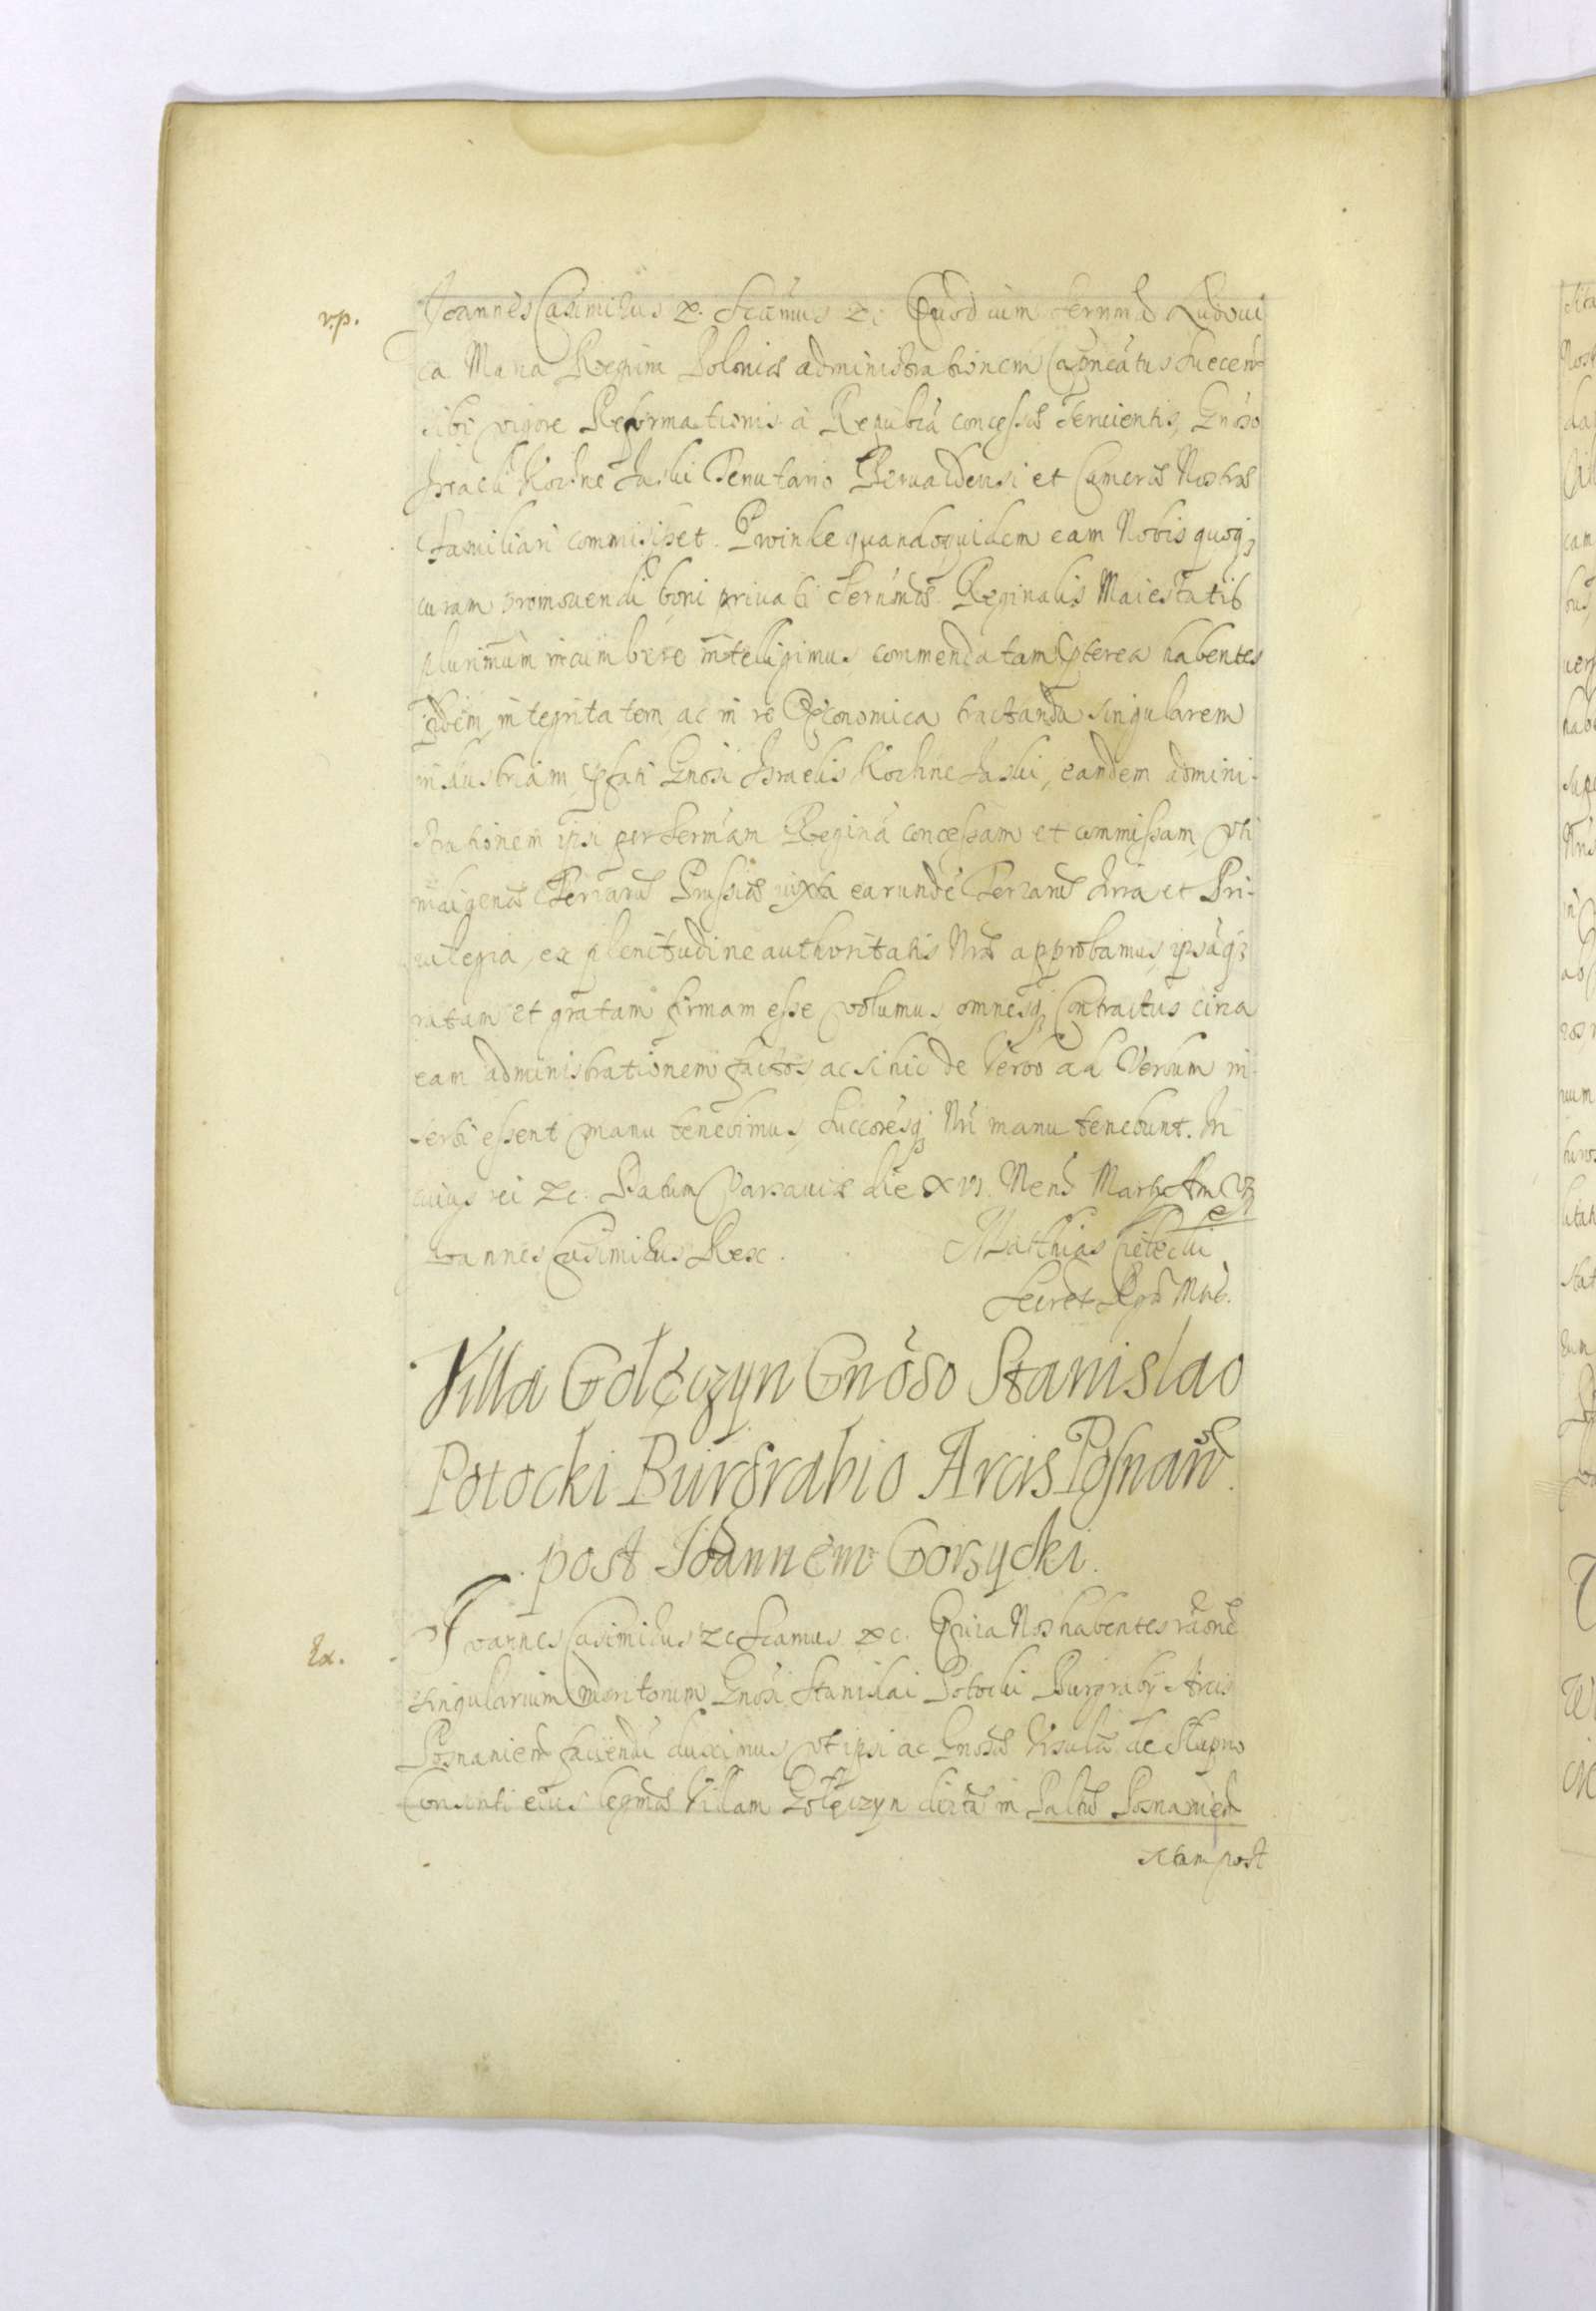 v.p.
Joannes Casimirus &c. Scimus &c. Quod cum Sermã Ludoui
ca Maria Regina Poloniæ administrationem Capneatus Suecens
sibi vigore Reformationis à Repubcã concessæ seruientis, Gnoso
Israeli Kochne Jaski Tenutario Berualdensi et Cameræ Nostræ
Familiari commisisset. Proinde quandoquidem eam Nobis quoqз
curam promouendi boni priuati Sernmæ Reginalis Maiestatis
plurimum incumbere intelligimus, commendatam pterea habentes
Fidem, integritatem, ac in re Oeconomica tractanda singularem
industriam, pfati Gnosi Israelis Kochne Jaski, eandem admini-
strationem ipsi per Sermam Reginã concessam et commissam, vti
indigenæ Terrarũ Prussiæ iuxta earundẽ Terrarũ Iura et Pri-
uilegia, ex plenitudine authoritatis Nræ approbamus, ipsãqз
ratam et gratam firmam esse volumus, omnesqз Contractus circa
eam administrationem factos, ac si hic de Verbo ad Verbum in-
serti essent manu tenebimus, Succoresqз Nri manu tenebunt. In
cuius rei &c. Datum Varsauiæ die XVI. Mens Martij Añ
Ioannes Casimirus Rex.
Matthias
Secret. Rgni Mtis.
Villa Golęczyn Gnoso Stanislao
Potocki Burgrabio Arcis Posnañ.
post Ioannem Gorzycki.
Ex.
Joannes Casimirus &c Scamus &c. Quia Nos habentes rãonẽ
singularium meritorum Gnosi Stanislai Potocki Burgrabij Arcis
Posnanien faciendũ duximus vt ipsi ac Gnosæ Vrsulæ de Stupno
Consorti eius legmæ Villam Golęczyn dictã in Paltu Posnanien
sitam post